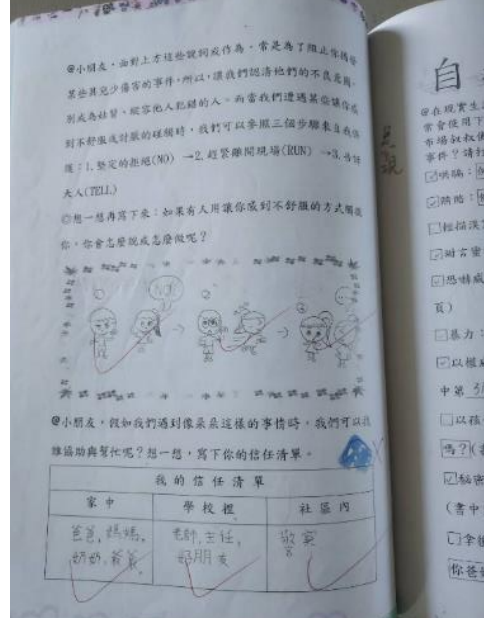 @小朋友,面對上方這些說詞或作為,常是為了阻止你揭發
某些具兒少傷害的事件,所以,讓我們認清他們的不良意圖,
別成為姑息、縱容他人犯錯的人。而當我們遭遇某些讓你感
到不舒服或討厭的碰觸時,我們可以參照三個步驟來自我保
護:1.堅定的拒絕(NO) →2.趕緊離開現場(RUN) →3.告訴
大人(TELL)
◎想一想再寫下來:如果有人用讓你感到不舒服的方式觸碰
你,你會怎麼說或怎麼做呢?
NO!
@小朋友,假如我們遇到像朵朵這樣的事情時,我們可以找
誰協助與幫忙呢?想一想,寫下你的信任清單。
我的信任清單
家中 學校裡 社區內
爸爸,媽媽, 老師,主任, 警
奶奶,爺爺 好朋友
自
@在現實生
常會使用下
事件?請打
☑哄騙:
頁)
☑暴力:
☑以權
中第
☐以孩
嗎?
☑秘密
(書中
☐拿
你爸